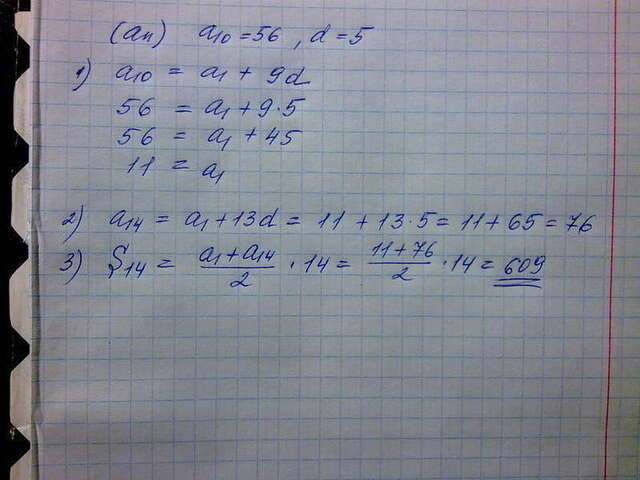 (an) a10 = 56 , d = 5
1) a10 = a1 + 9d
56 = a1 + 9·5
56 = a1 + 45
11 = a1
2) a14 = a1 + 13d = 11 + 13·5 = 11 + 65 = 76
3) S14 = (a1 + a14)/2 · 14 = (11 + 76)/2 · 14 = 609